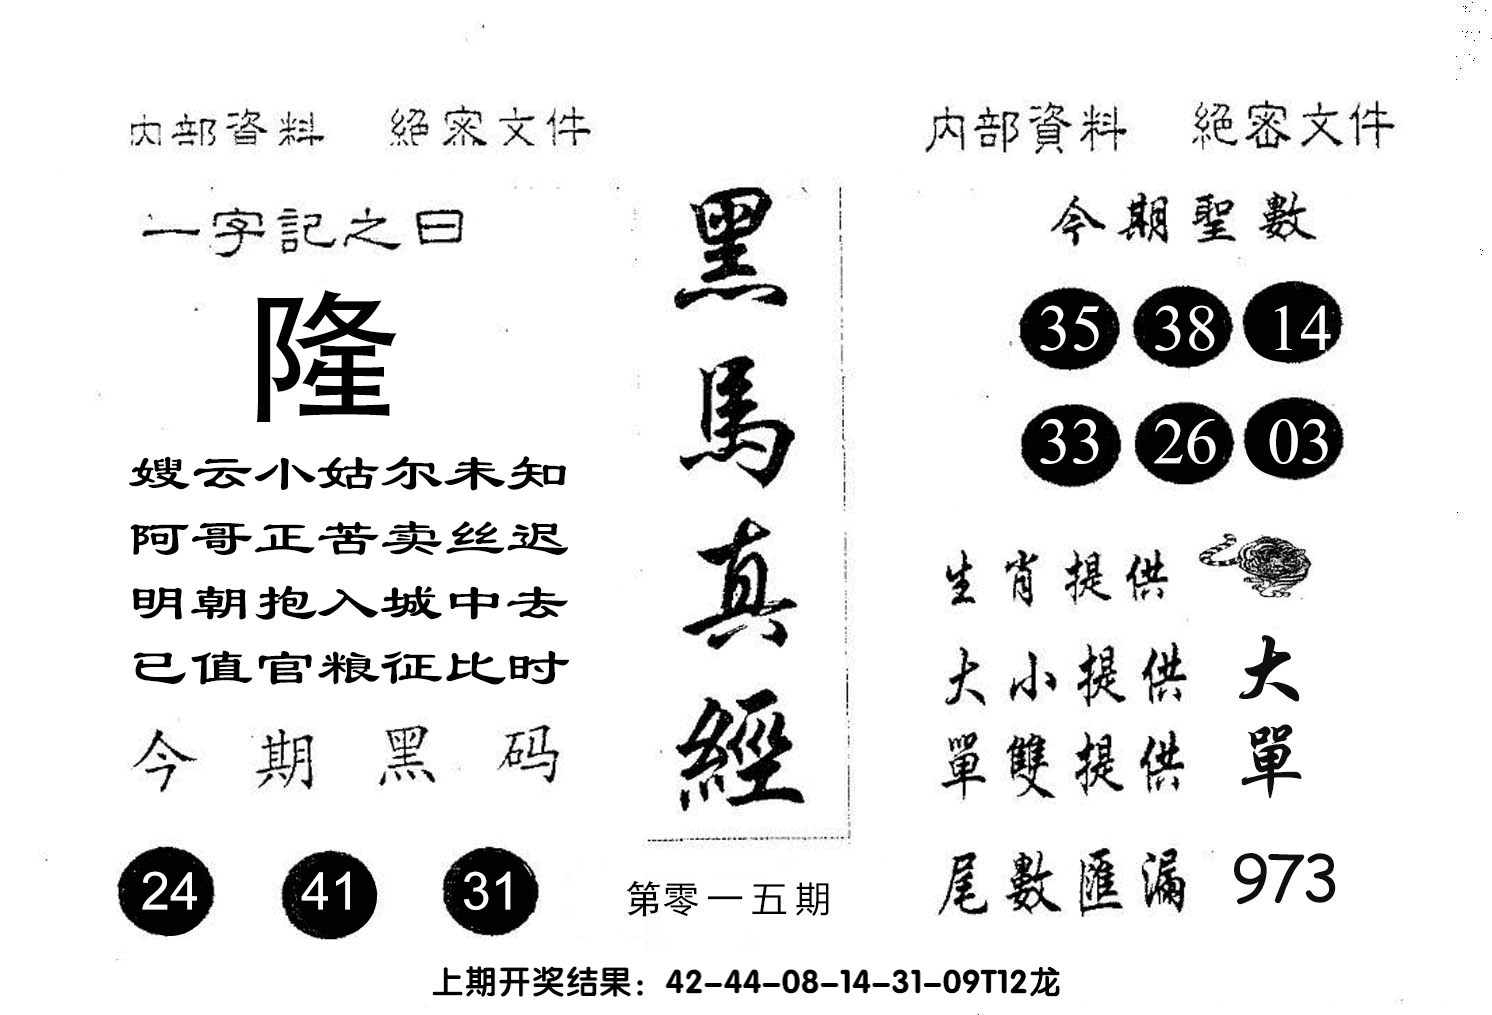 内部資料 絕密文件
一字記之曰
隆
嫂云小姑尔未知
阿哥正苦卖丝迟
明朝抱入城中去
已值官粮征比时
今期黑码
24 41 31
黑馬真經
第零一五期
内部資料 絕密文件
今期聖數
35 38 14
33 26 03
生肖提供
大小提供 大
單雙提供 單
尾數匯漏 973
上期开奖结果：42-44-08-14-31-09T12龙